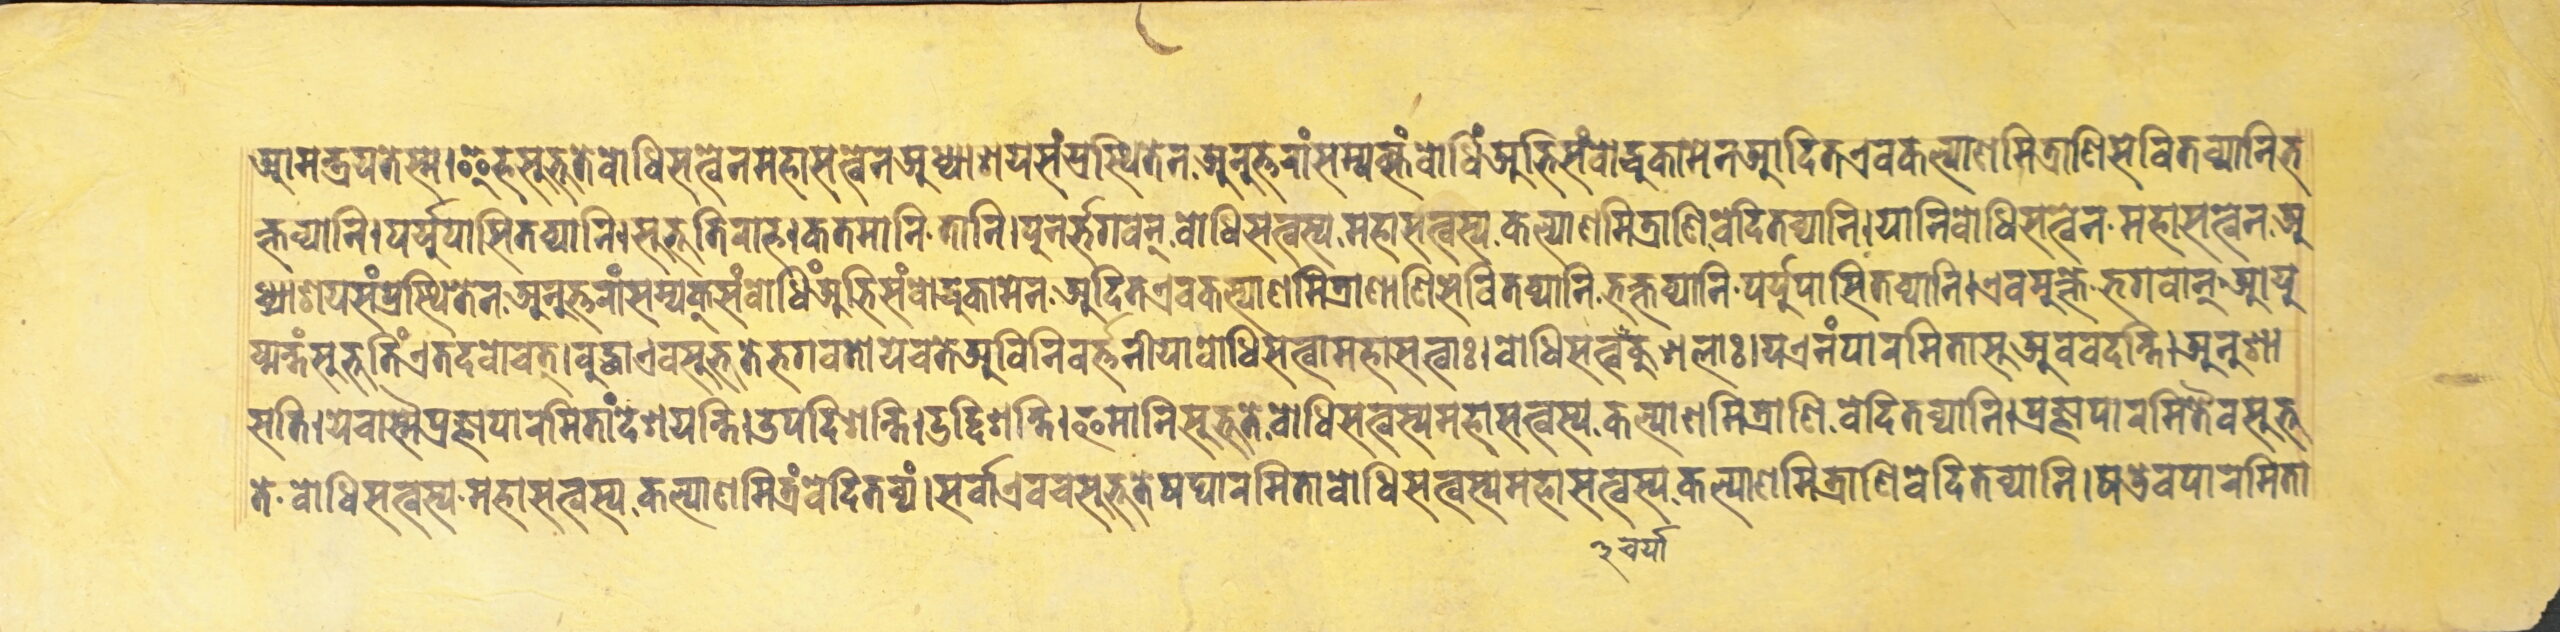 आमन्त्रयते स्म। इह सुभूते बोधिसत्त्वेन महासत्त्वेन अध्याशयसंप्रस्थितेन अनुत्तरां सम्यक्संबोधिं अभिसंबोद्धुकामेन आदित एव कल्याणमित्राणि सेवितव्यानि भ
क्तव्यानि। पर्युपासितव्यानि। सुभूतिराह। कतमानि तानि। पुनर्भगवन् बोधिसत्वस्य महासत्वस्य कल्याणमित्राणि वेदितव्यानि। यानि बोधिसत्वेन महासत्त्वेन अ
ध्याशयसंप्रस्थितेन अनुत्तरां सम्यक्संबोधिं अभिसंबोद्धुकामेन अदित एव कल्याणमित्राणाणि सेवितव्यानि भक्तव्यानि पर्युपासितव्यानि। एवमुक्ते भगवान् आयु
ष्मन्तं सुभूतिं एतदवोचत्। बुद्धा एव सुभूते भगवन्तो ये च ते अविनिवर्त्तनीया बोधिसत्वा महासत्वाः। बोधिसत्व कुशलाः। य एनं पारमितासु अववदन्ति। अनुशा
सति। ये चास्मै प्रज्ञापारमितां देशयन्ति। उपदिशन्ति। उद्दिशन्ति। इमानि सुभूते बोधिसत्वस्य महासत्वस्य कल्याणमित्राणि वेदितव्यानि। प्रज्ञापारमितैव सुभू
ते बोधिसत्वस्य महासत्वस्य कल्याणमित्रं वेदितव्यं। सर्वा एव च सुभूते षट्पारमिता बोधिसत्वस्य महासत्वस्य कल्याणमित्राणि वेदितव्यानि। षडेव पारमिता
३ चर्या